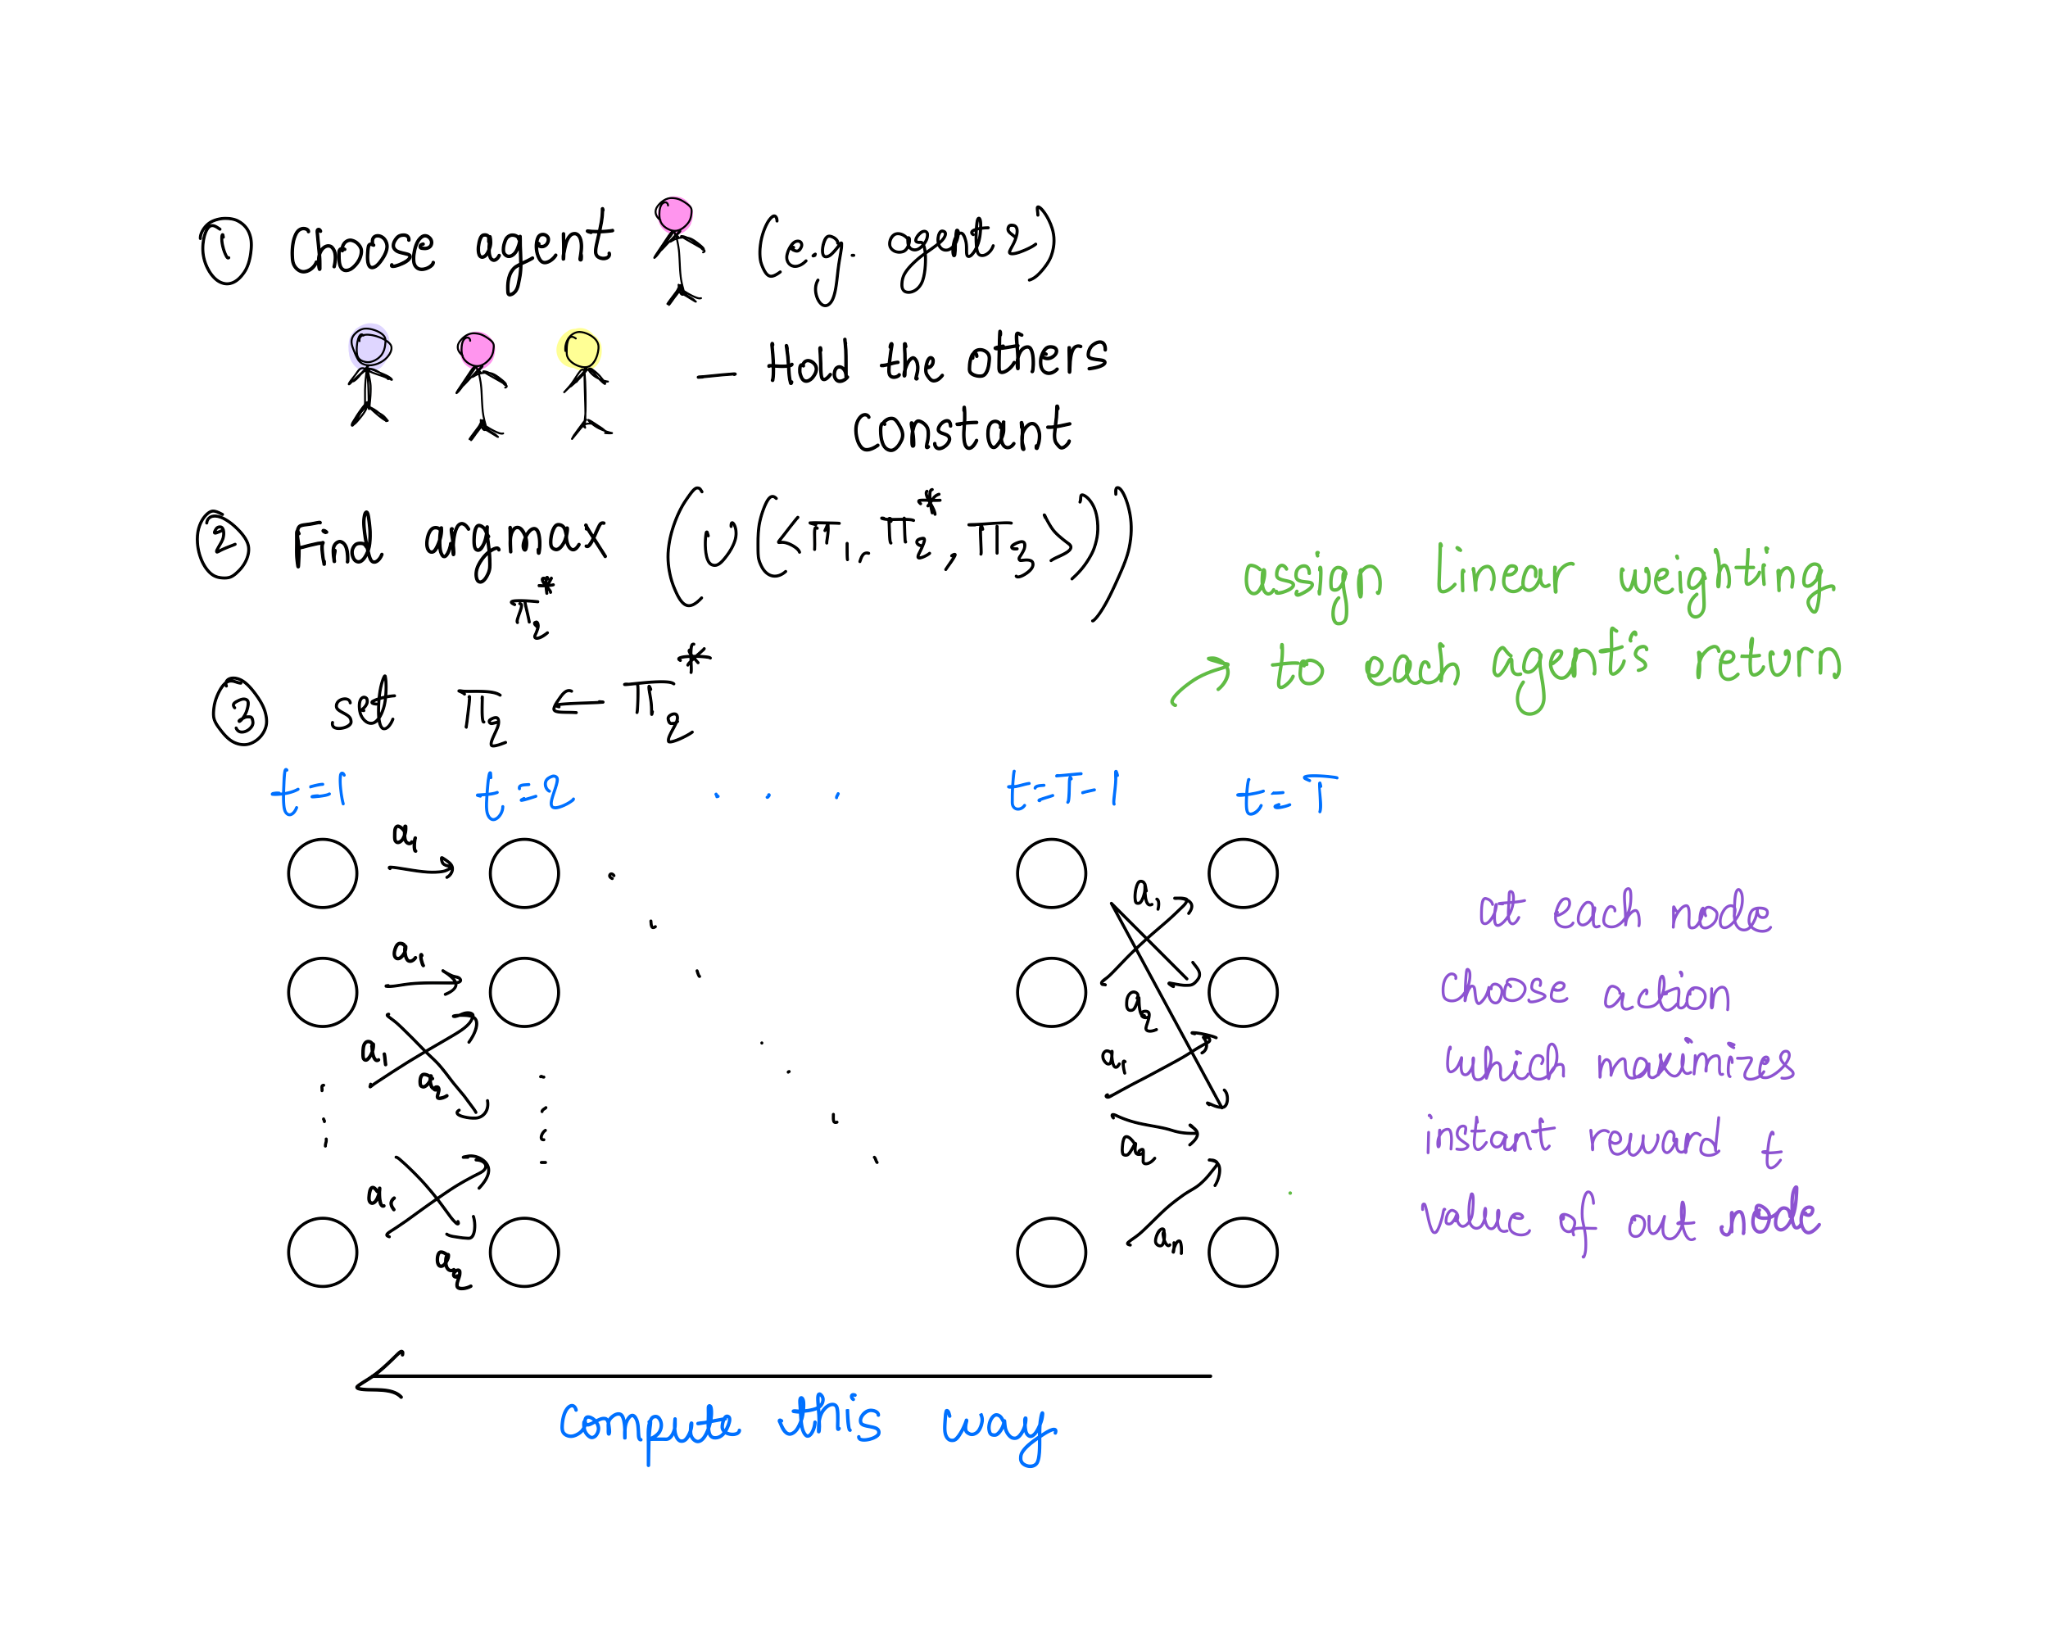 ① Choose agent (e.g. agent 2)
— Hold the others
constant
② Find argmax (U(<π₁, π₂*, π₃>))
π₂*
assign linear weighting
to each agent's return
③ set π₂ ← π₂*
t=1 t=2 . . . t=T-1 t=T
a₁
a₁
a₁
a₂
a₁
a₂
a₁
a₂
a₁
a₂
aₙ
at each node
choose action
which maximizes
instant reward t
value of out node
compute this way